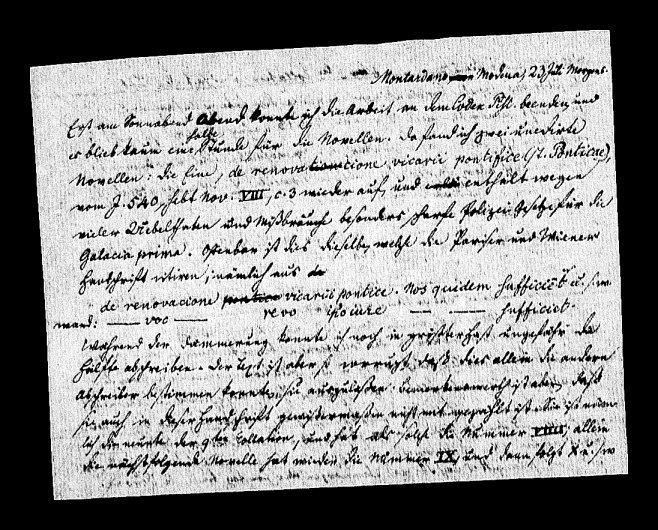 Montardano Modena, 23 Juli Morgens.
Erst am Sonnabend Abend konnte ich die Arbeit an dem Codex Pist. beenden, und
es blieb kaum eine halbe Stunde für die Novellen. Da fand ich zwei unedirte
Novellen: die Eine, de renovacione vicarii pontifice (st. Ponticae),
vom J. 540, hebt Nov. VIII, c. 3 wieder auf, und enthält wegen
vieler Uebelthaten und Mißbräuche besonders scharfe Polizei-Gesetze für die
Galacia prima. Offenbar ist dies dieselbe, welche die Pariser und Wiener
Handschrift citiren, nämlich aus
de renovacione vicarii pontice. Nos quidem sufficiēt u.s.w.
ward: — voc — revo ipo iure — — sufficiet.
Während der Dämmerung konnte ich noch in größter Hast ungefähr die
Hälfte abschreiben. Der Text ist aber so corrupt, daß dies allein die andern
Abschreiber bestimmen konnte, sie auszulassen. Bemerkenswerth ist aber, daß
sie auch in dieser Handschrift gewissermaßen nicht mit gezählt ist. Sie ist näm-
lich die neunte der 9ten Collation, und hat als solche die Nummer VIIII; allein
die nächstfolgende Novelle hat wieder die Nummer IX, und dann folgt X u.s.w